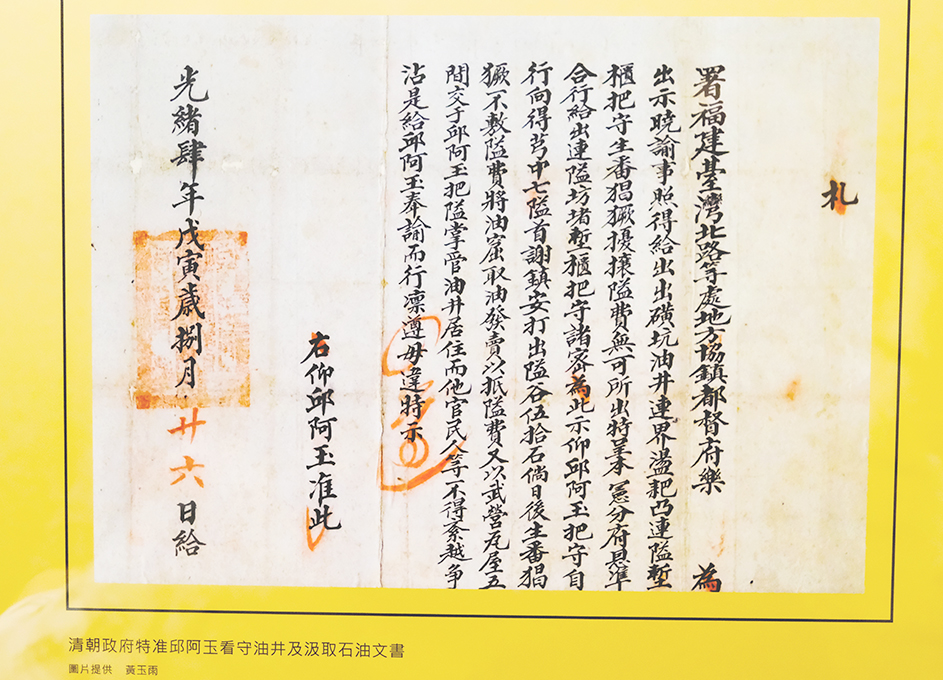 札
署福建臺灣北路等處地方協鎮都督府樂 為
出示曉諭事照得給出出磺坑油井連界盪耙凸連隘塹
櫃把守生番猖獗擾攘隘費無可所出特呈本憲分府具準
合行給出連隘坊堵塹櫃把守諸密為此示仰邱阿玉把守自
行向得芎中七隘首謝鎮安打出隘谷伍拾石倘日後生番猖
獗不敷隘費將油窟取油發賣以抵隘費又以武營瓦屋五
間交于邱阿玉把隘掌管油井居住而他官民人等不得紊越爭
沾是給邱阿玉奉諭而行凛遵毋違特示
右仰邱阿玉准此
光緒肆年戊寅歲捌月廿六日給
清朝政府特准邱阿玉看守油井及汲取石油文書
圖片提供 黃玉雨